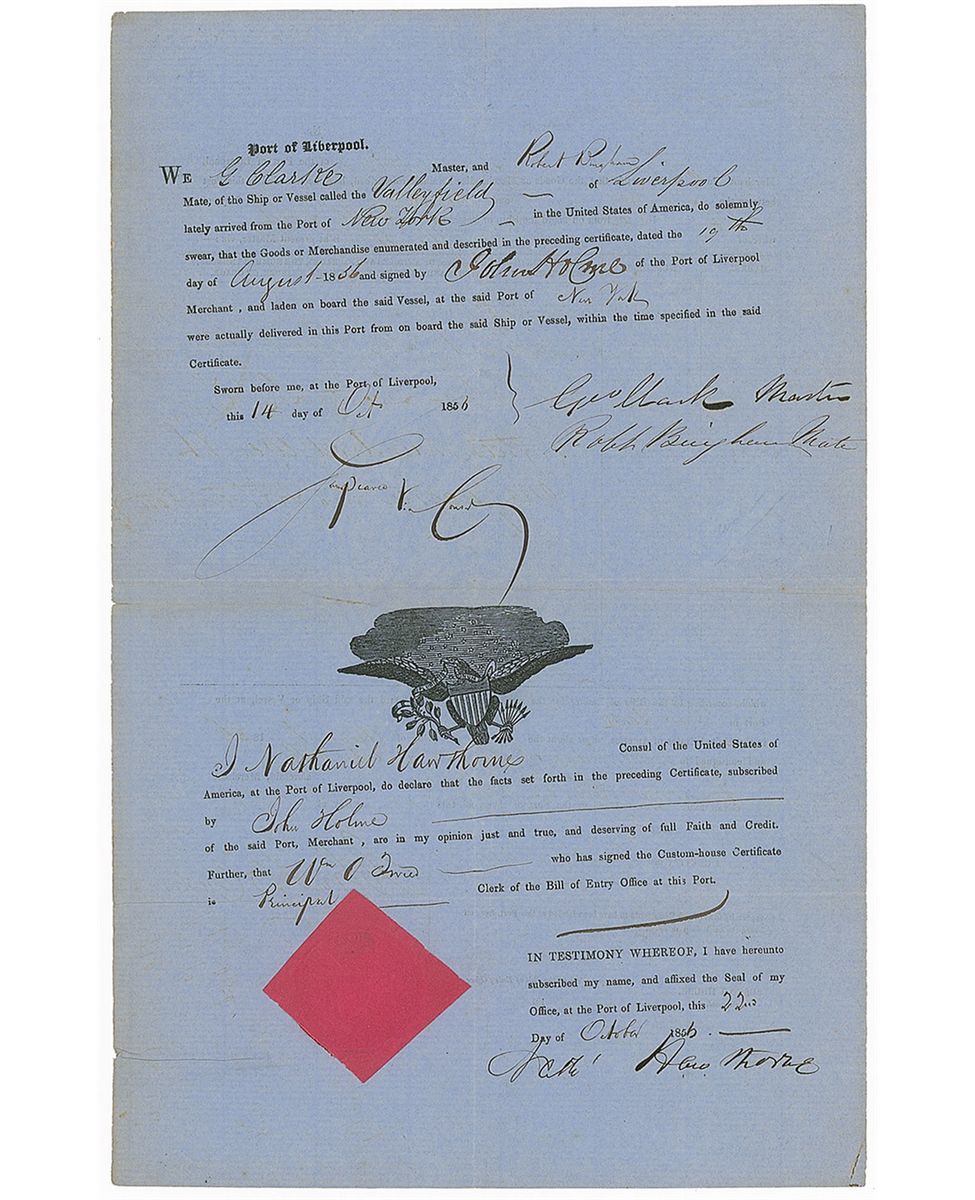 Port of Liverpool.
WE G Clarke Master, and Robert Bingham
Mate, of the Ship or Vessel called the Valleyfield — of Liverpool
lately arrived from the Port of New York — in the United States of America, do solemnly
swear, that the Goods or Merchandise enumerated and described in the preceding certificate, dated the 19th
day of August 1856 and signed by John Holme of the Port of Liverpool
Merchant , and laden on board the said Vessel, at the said Port of New York
were actually delivered in this Port from on board the said Ship or Vessel, within the time specified in the said
Certificate.
Sworn before me, at the Port of Liverpool,
this 14 day of Oct 1856
Geo Clark Master
Robt Bingham Mate
Pearce Vice Consul
I Nathaniel Hawthorne Consul of the United States of
America, at the Port of Liverpool, do declare that the facts set forth in the preceding Certificate, subscribed
by John Holme
of the said Port, Merchant , are in my opinion just and true, and deserving of full Faith and Credit.
Further, that Wm O who has signed the Custom-house Certificate
is Principal Clerk of the Bill of Entry Office at this Port.
IN TESTIMONY WHEREOF, I have hereunto
subscribed my name, and affixed the Seal of my
Office, at the Port of Liverpool, this 22nd
Day of October 1856.
Nath' Hawthorne